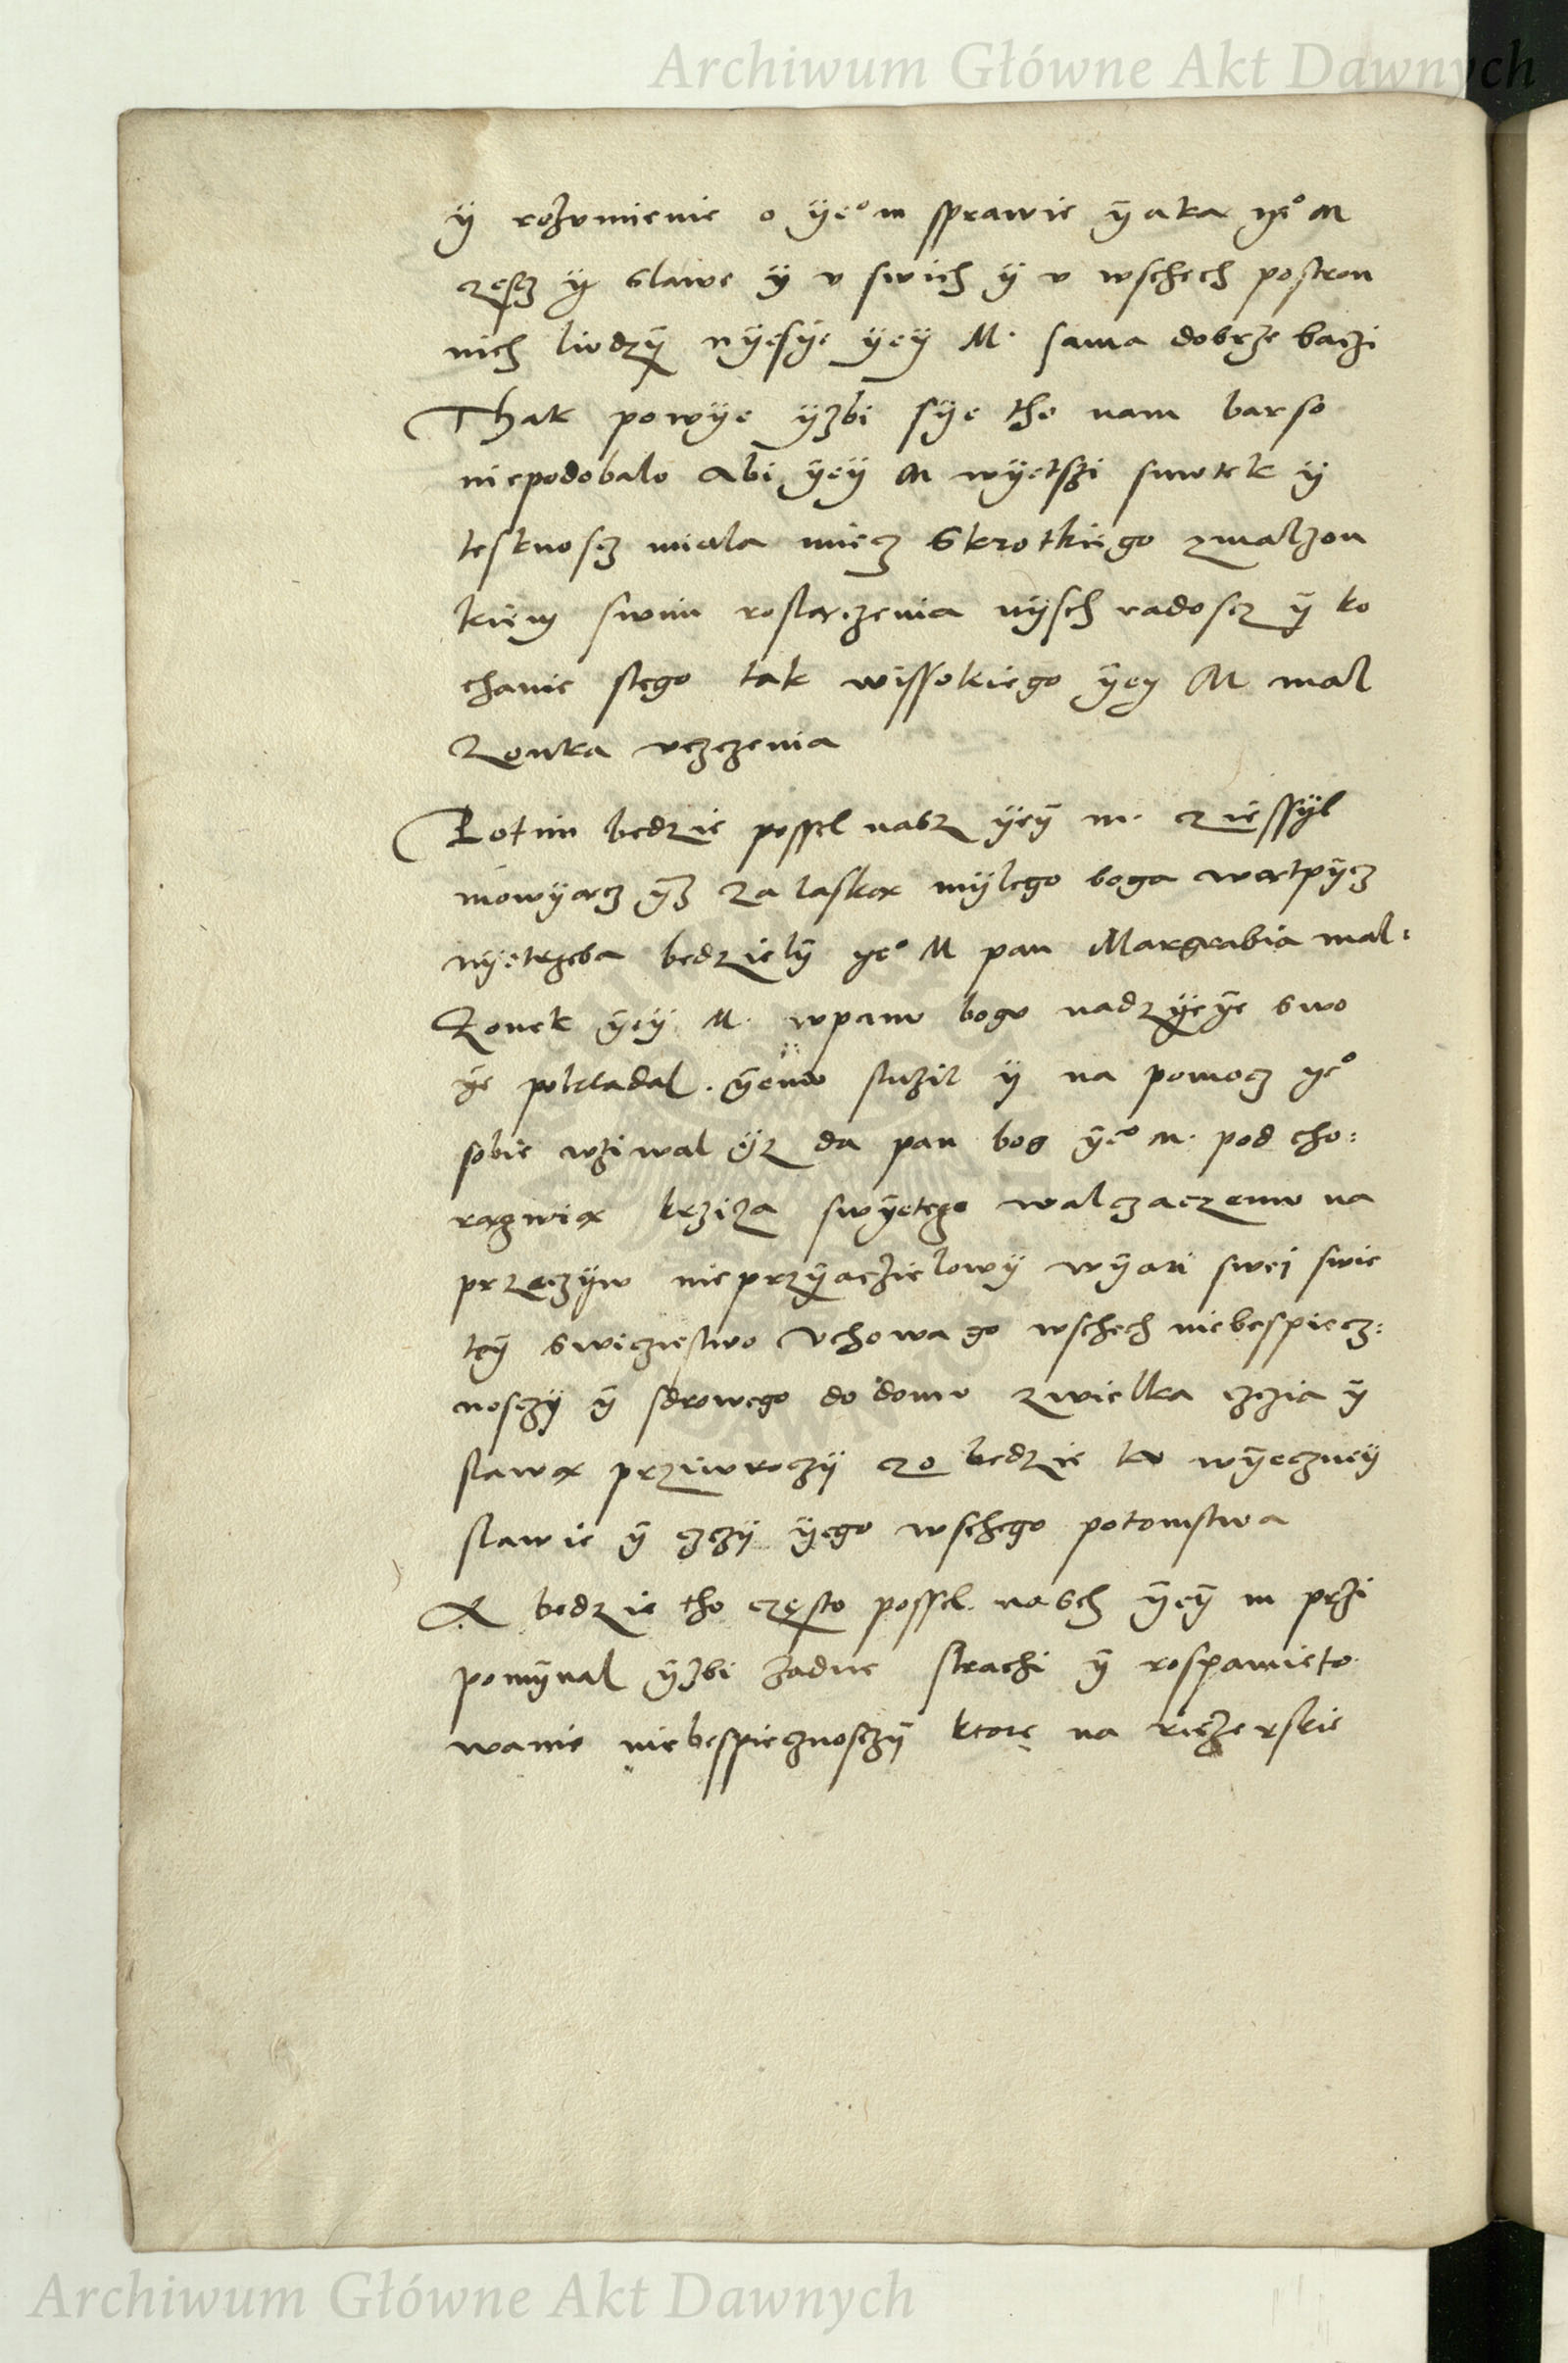 Archiwum Główne Akt Dawnych
ÿ rozvmienie o ÿe° m sprawie ÿaka ÿe° M
częscz ÿ slawe ÿ v swich ÿ v wschech postron
nich liudzÿ nÿesÿe ÿeÿ M. sama dobrze baczi
Thak powÿe ÿzbi sÿe tho nam barso
niepodobalo abi ÿeÿ M wÿetszi smvtek ÿ
tesknoscz miala niecz skrotkiego zmalzon
kiem swim roslaczenia nÿsch radoscz ÿ ko
chanie stego tak wissokiego ÿeÿ M mal
zonka vczczenia
Potim bedzie possel nasz ÿeÿ m. cziessÿl
mowÿacz ÿz za laska mÿlego boga watpÿcz
nÿetrzeba bedzielÿ ÿe° M pan Margrabia mal:
zonek ÿeÿ M. wpanv bogv nadzÿeÿe swo
ÿe pokladal. ÿemv sluzil ÿ na pomocz ÿe°
sobie wziwal ÿz da pan bog ÿe° M. pod cho:
ragwia krziza swÿetego walczaczemv na
przeczÿw nieprzÿacielowÿ wÿari swei swie
teÿ swiciestwo vchowa go wschech niebespiecz:
nosczÿ ÿ sdrowego do domv zwielka czczia ÿ
slawa prziwroczÿ czo bedzie kv wÿeczneÿ
slawie ÿ czczÿ ÿego wschego potomstwa
A bedzie tho często possel nasch ÿeÿ m przi
pomÿnal ÿzbi zadne strachi ÿ rospamieto
wanie niebespiecznosczÿ ktorę na riczerskie
Archiwum Główne Akt Dawnych